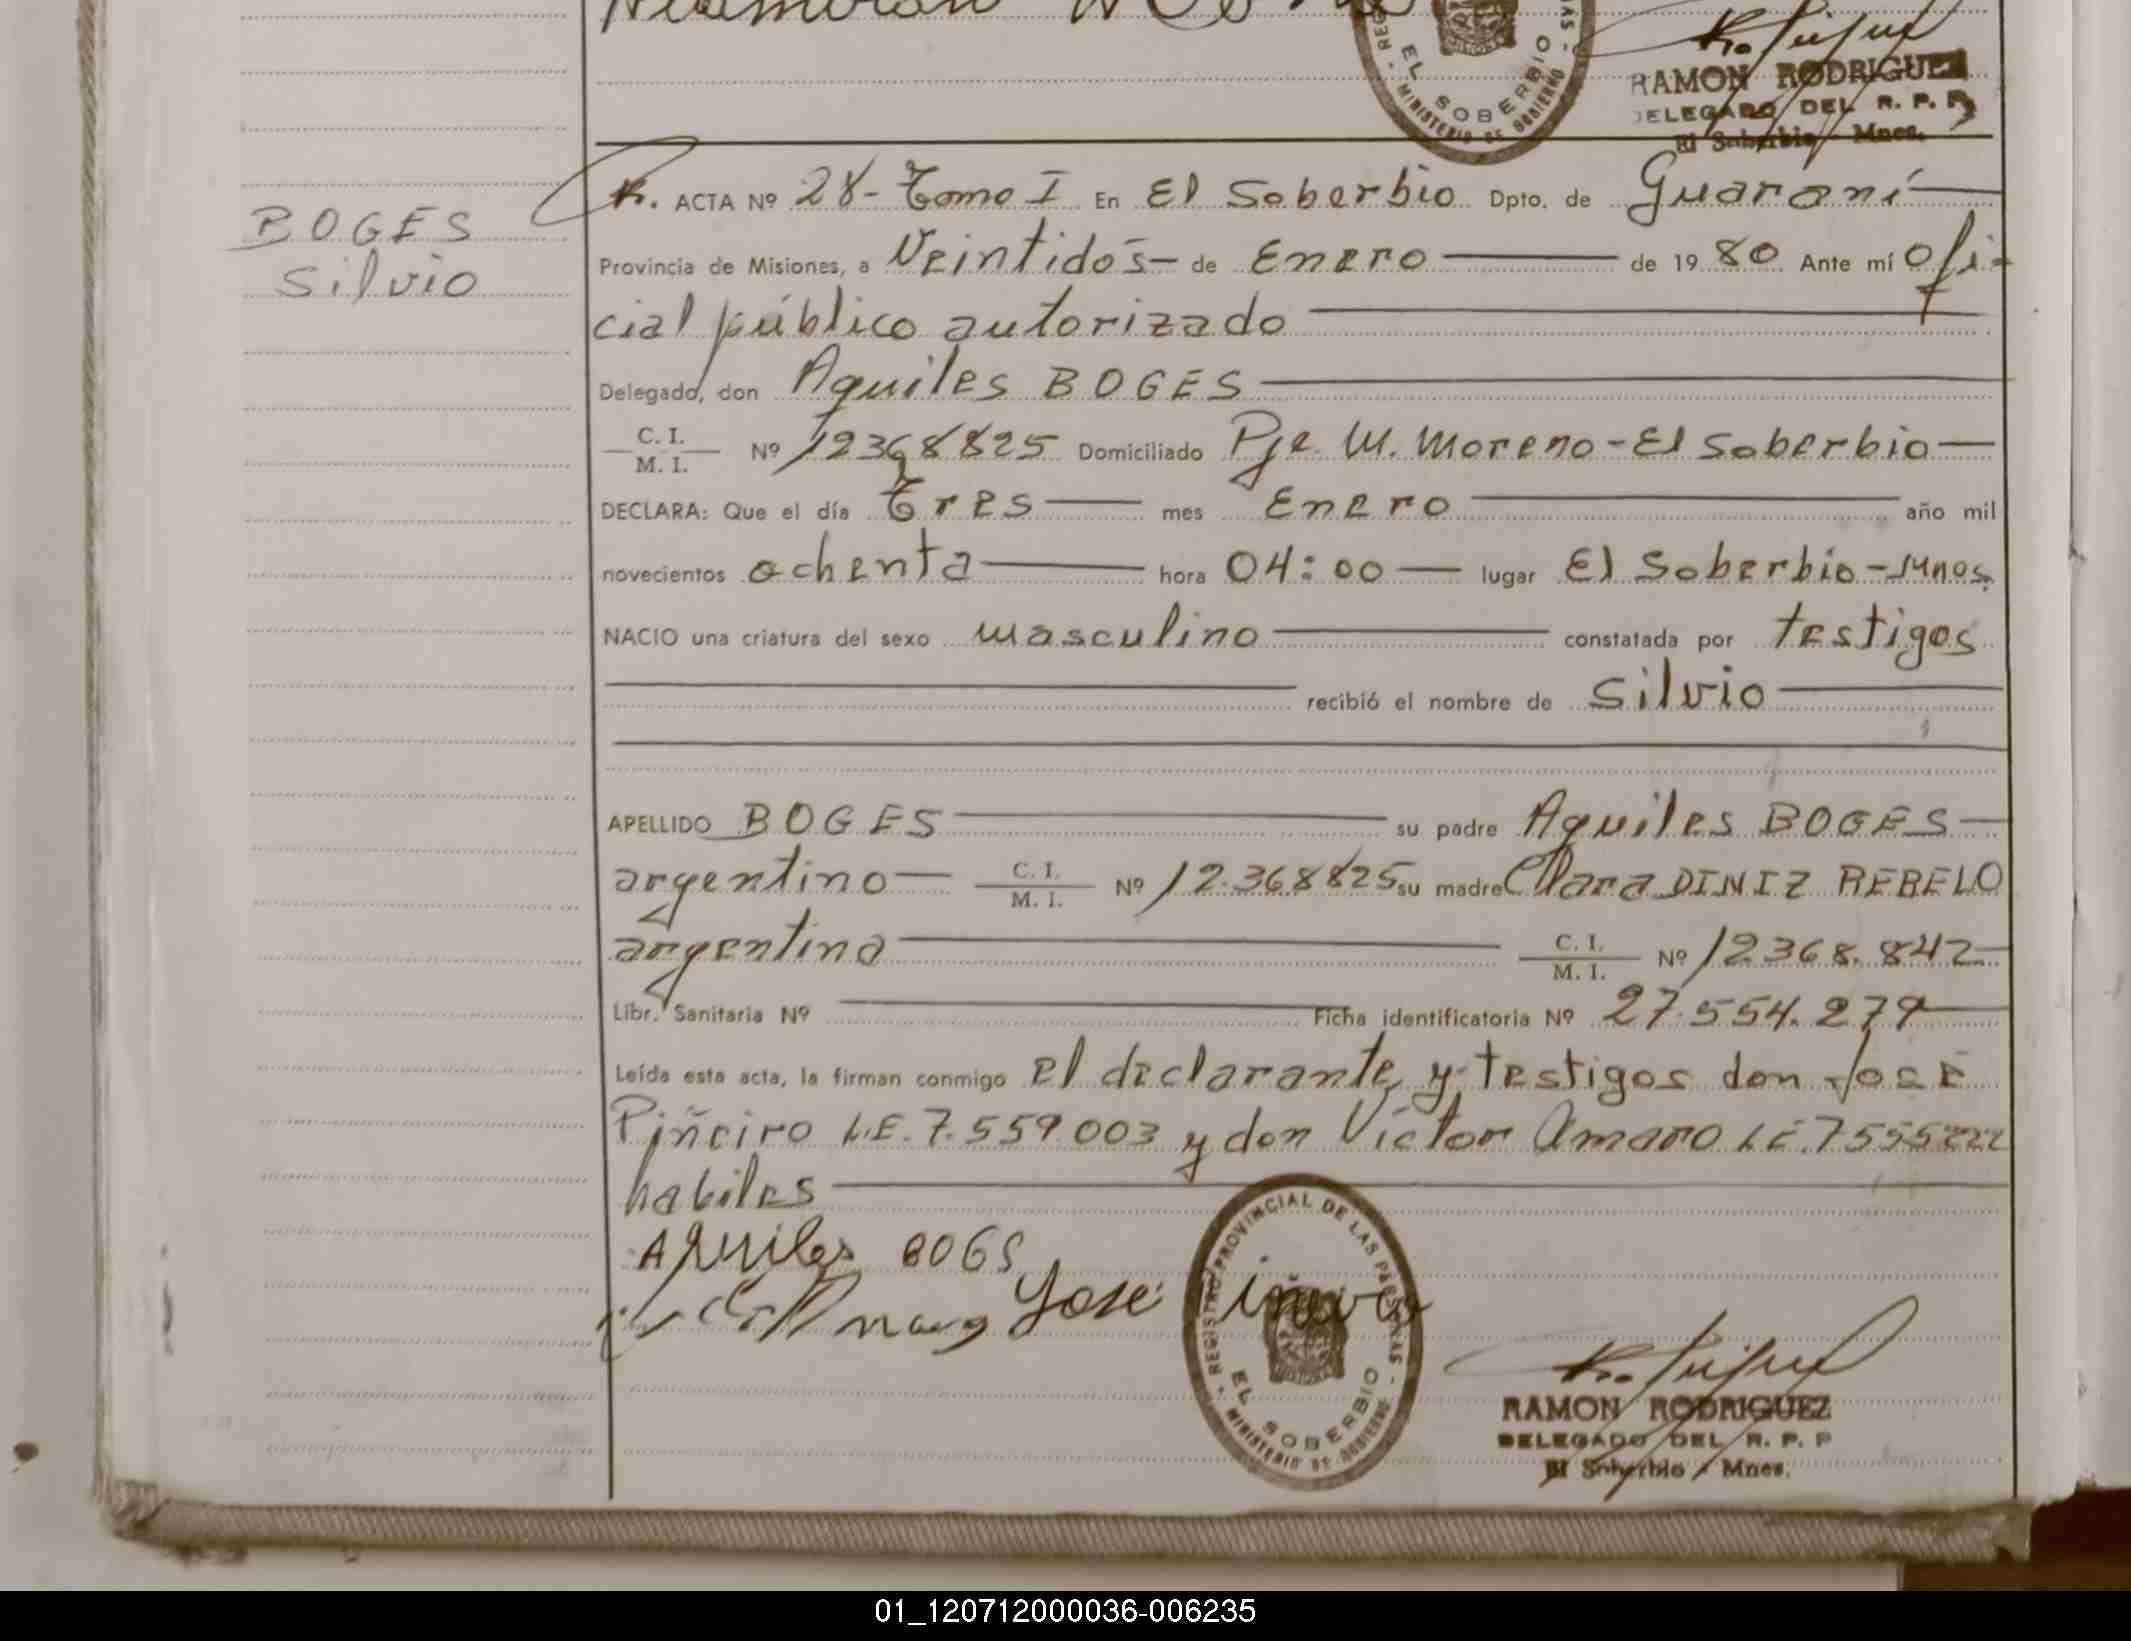 REG
AS -
EL SOBERBIO
- MINISTERIO DE GOBIERNO
RAMON RODRIGUEZ
DELEGADO DEL R. P. P
El Soberbio - Mnes.
BOGES
Silvio
ACTA Nº 28- Tomo I En El Soberbio Dpto. de Guaraní
Provincia de Misiones, a Veintidós- de Enero de 1980 Ante mí ofi-
cial público autorizado
Delegado, don Aquiles BOGES
C. I.
M. I. Nº 12368825 Domiciliado Pje. M. Moreno-El Soberbio
DECLARA: Que el día Tres mes Enero año mil
novecientos ochenta hora 04:00 lugar El Soberbio-Mnes.
NACIO una criatura del sexo masculino constatada por testigos
recibió el nombre de Silvio
APELLIDO BOGES su padre Aquiles BOGES
argentino C. I.
M. I. Nº 12.368825 su madre Clara DINIZ REBELO
argentina C. I.
M. I. Nº 12.368.842
Libr. Sanitaria Nº Ficha identificatoria Nº 27.554.279
Leída esta acta, la firman conmigo el declarante, y testigos don José
Piñeiro L.E. 7.559.003 y don Víctor Amaro L.E. 7555222
habiles
Aquiles BOGS
José
REGISTRO PROVINCIAL DE LAS PERSONAS -
EL SOBERBIO
- MINISTERIO DE GOBIERNO
RAMON RODRIGUEZ
DELEGADO DEL R. P. P
El Soberbio - Mnes.
01_120712000036-006235